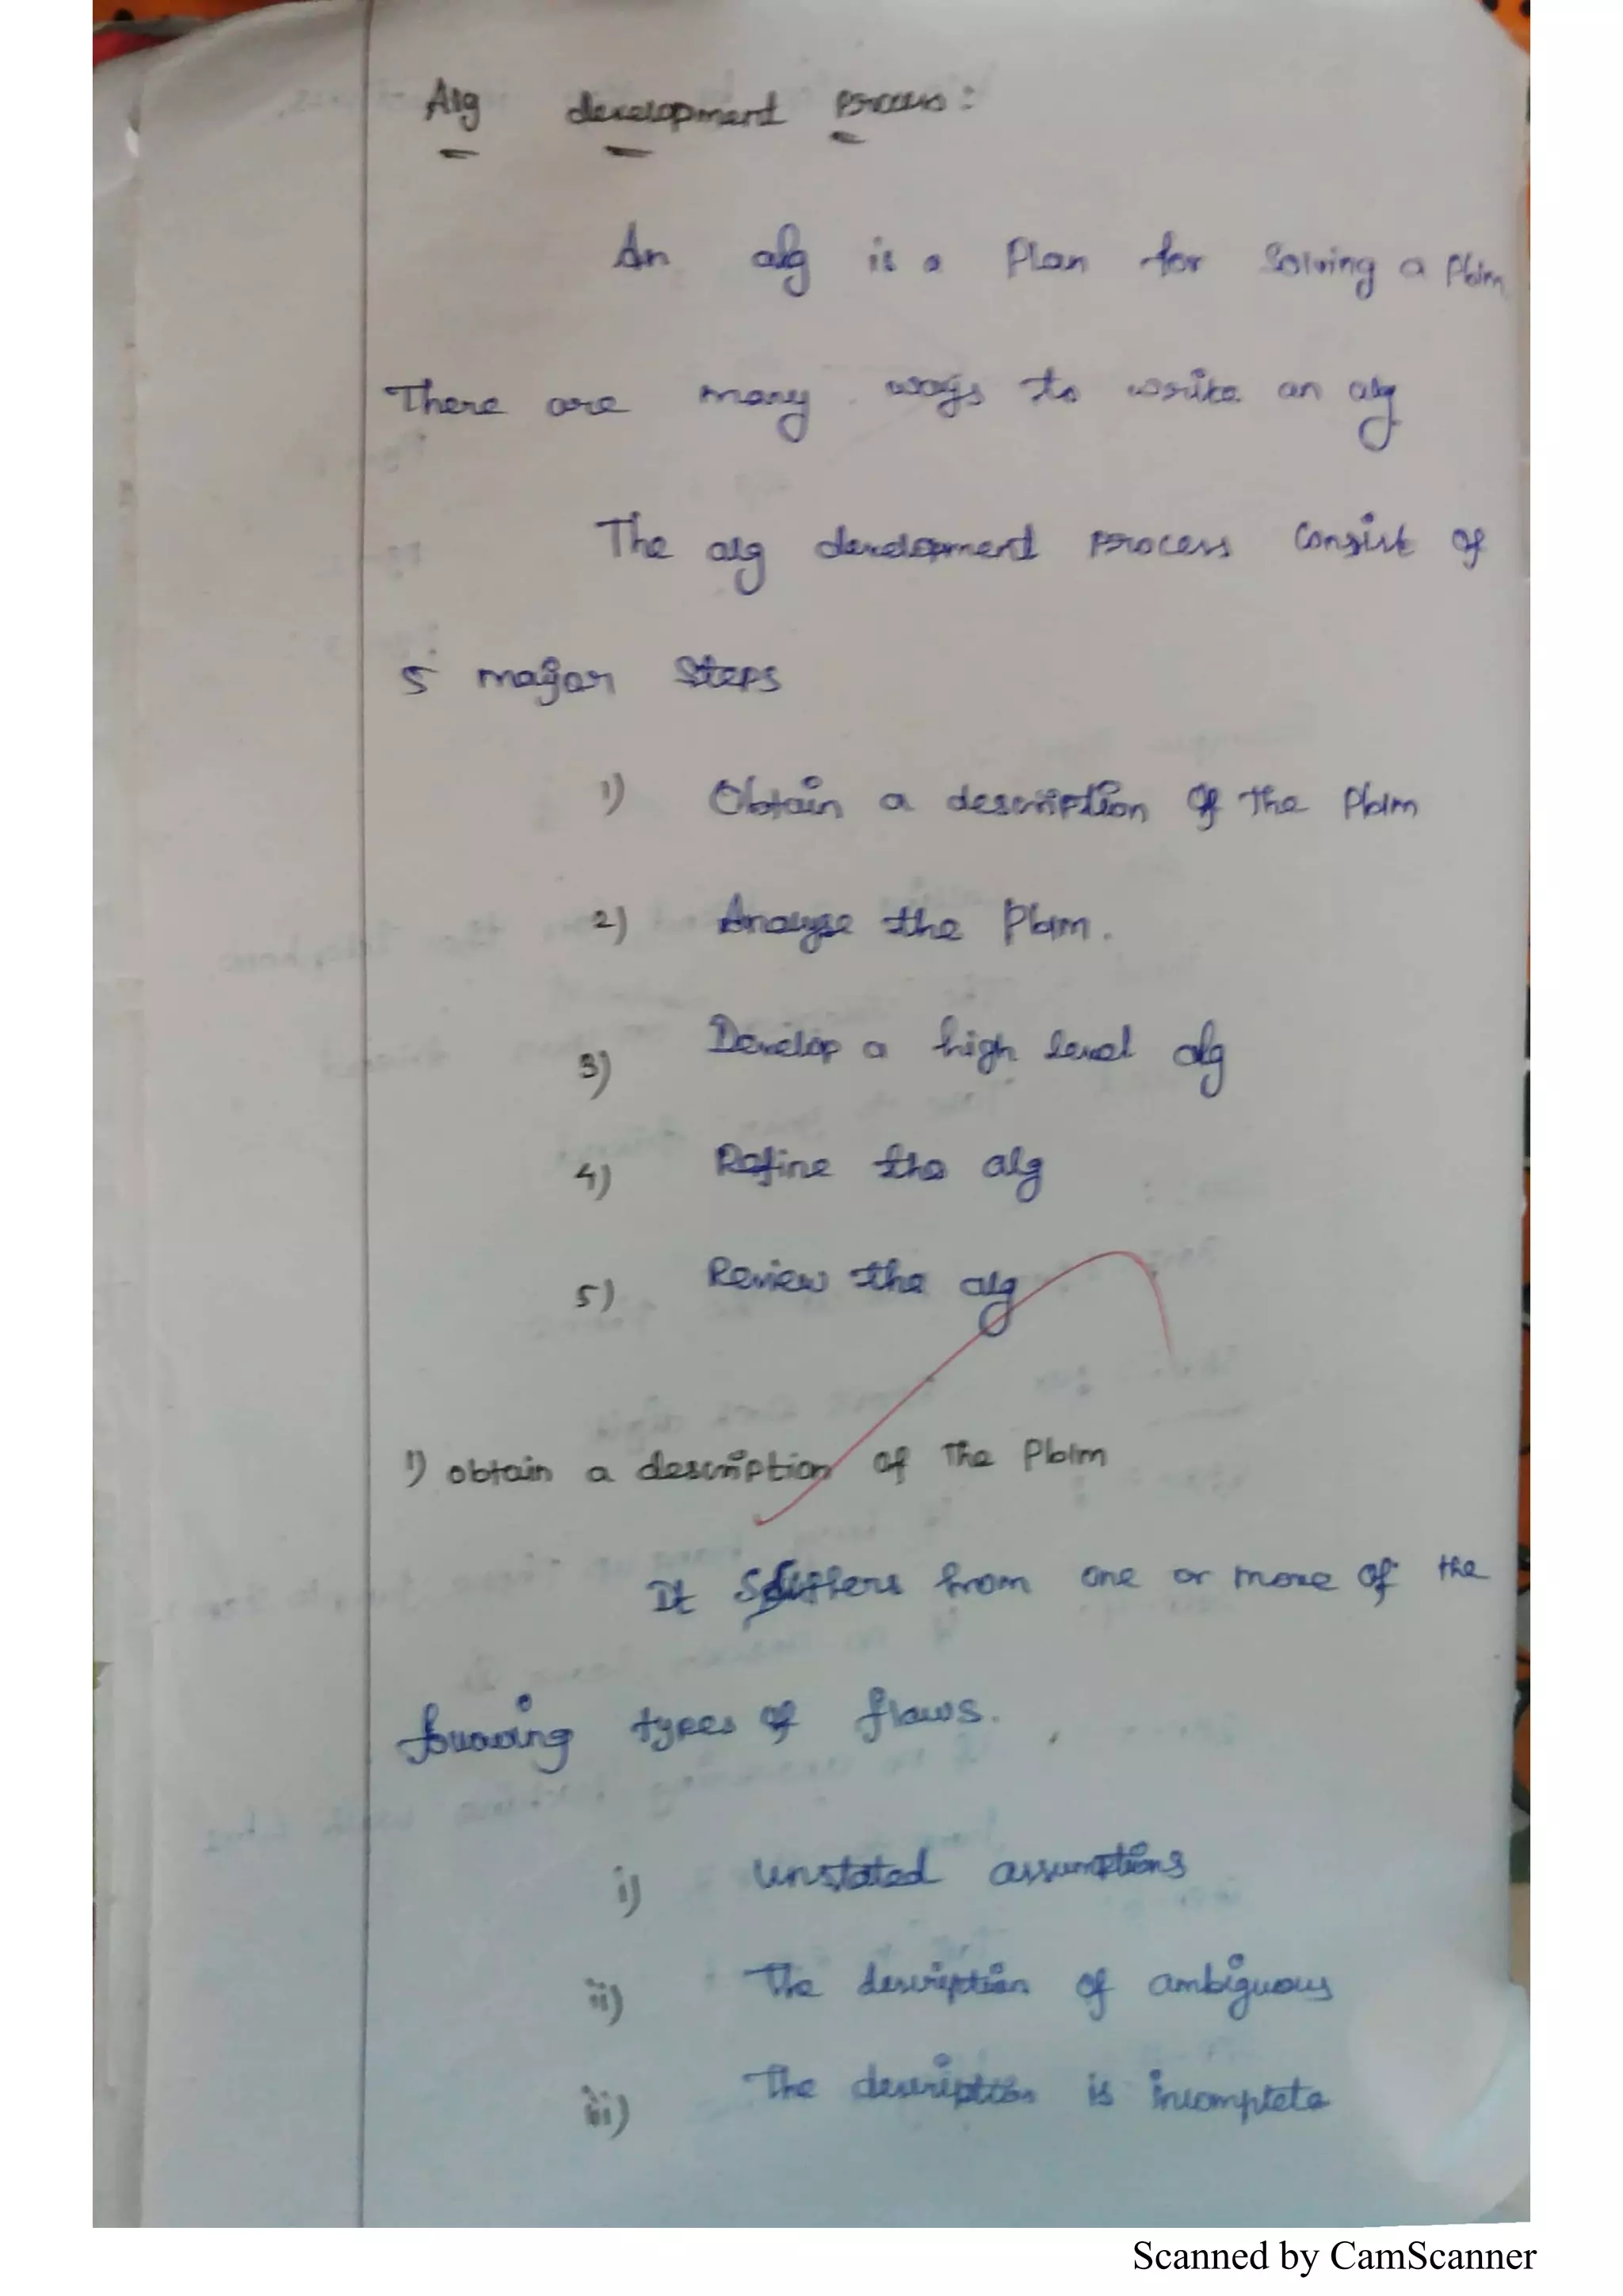 Alg development process:
An alg is a plan for solving a Pblm
There are many ways to write an alg
The alg development process consist of
5 major steps
1) Obtain a description of the Pblm
2) Analyse the Pblm.
3) Develop a high level alg
4) Refine the alg
5) Review the alg
1) obtain a description of The Pblm
It Suffers from one or more of the
following types of flaws.
i) unstated assumptions
ii) The description of ambiguous
iii) The description is incomplete
Scanned by CamScanner